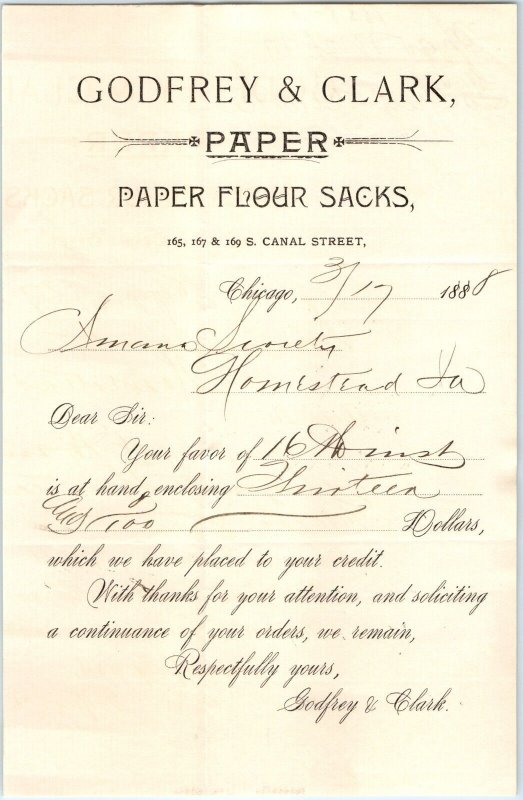 GODFREY & CLARK,
PAPER
PAPER FLOUR SACKS,
165, 167 & 169 S. CANAL STREET,
Chicago, 3/17 1888
Amana Society
Homestead Ia
Dear Sir:
Your favor of 16th inst
is at hand, enclosing Thirteen
/100 Dollars,
which we have placed to your credit.
With thanks for your attention, and soliciting
a continuance of your orders, we remain,
Respectfully yours,
Godfrey & Clark.